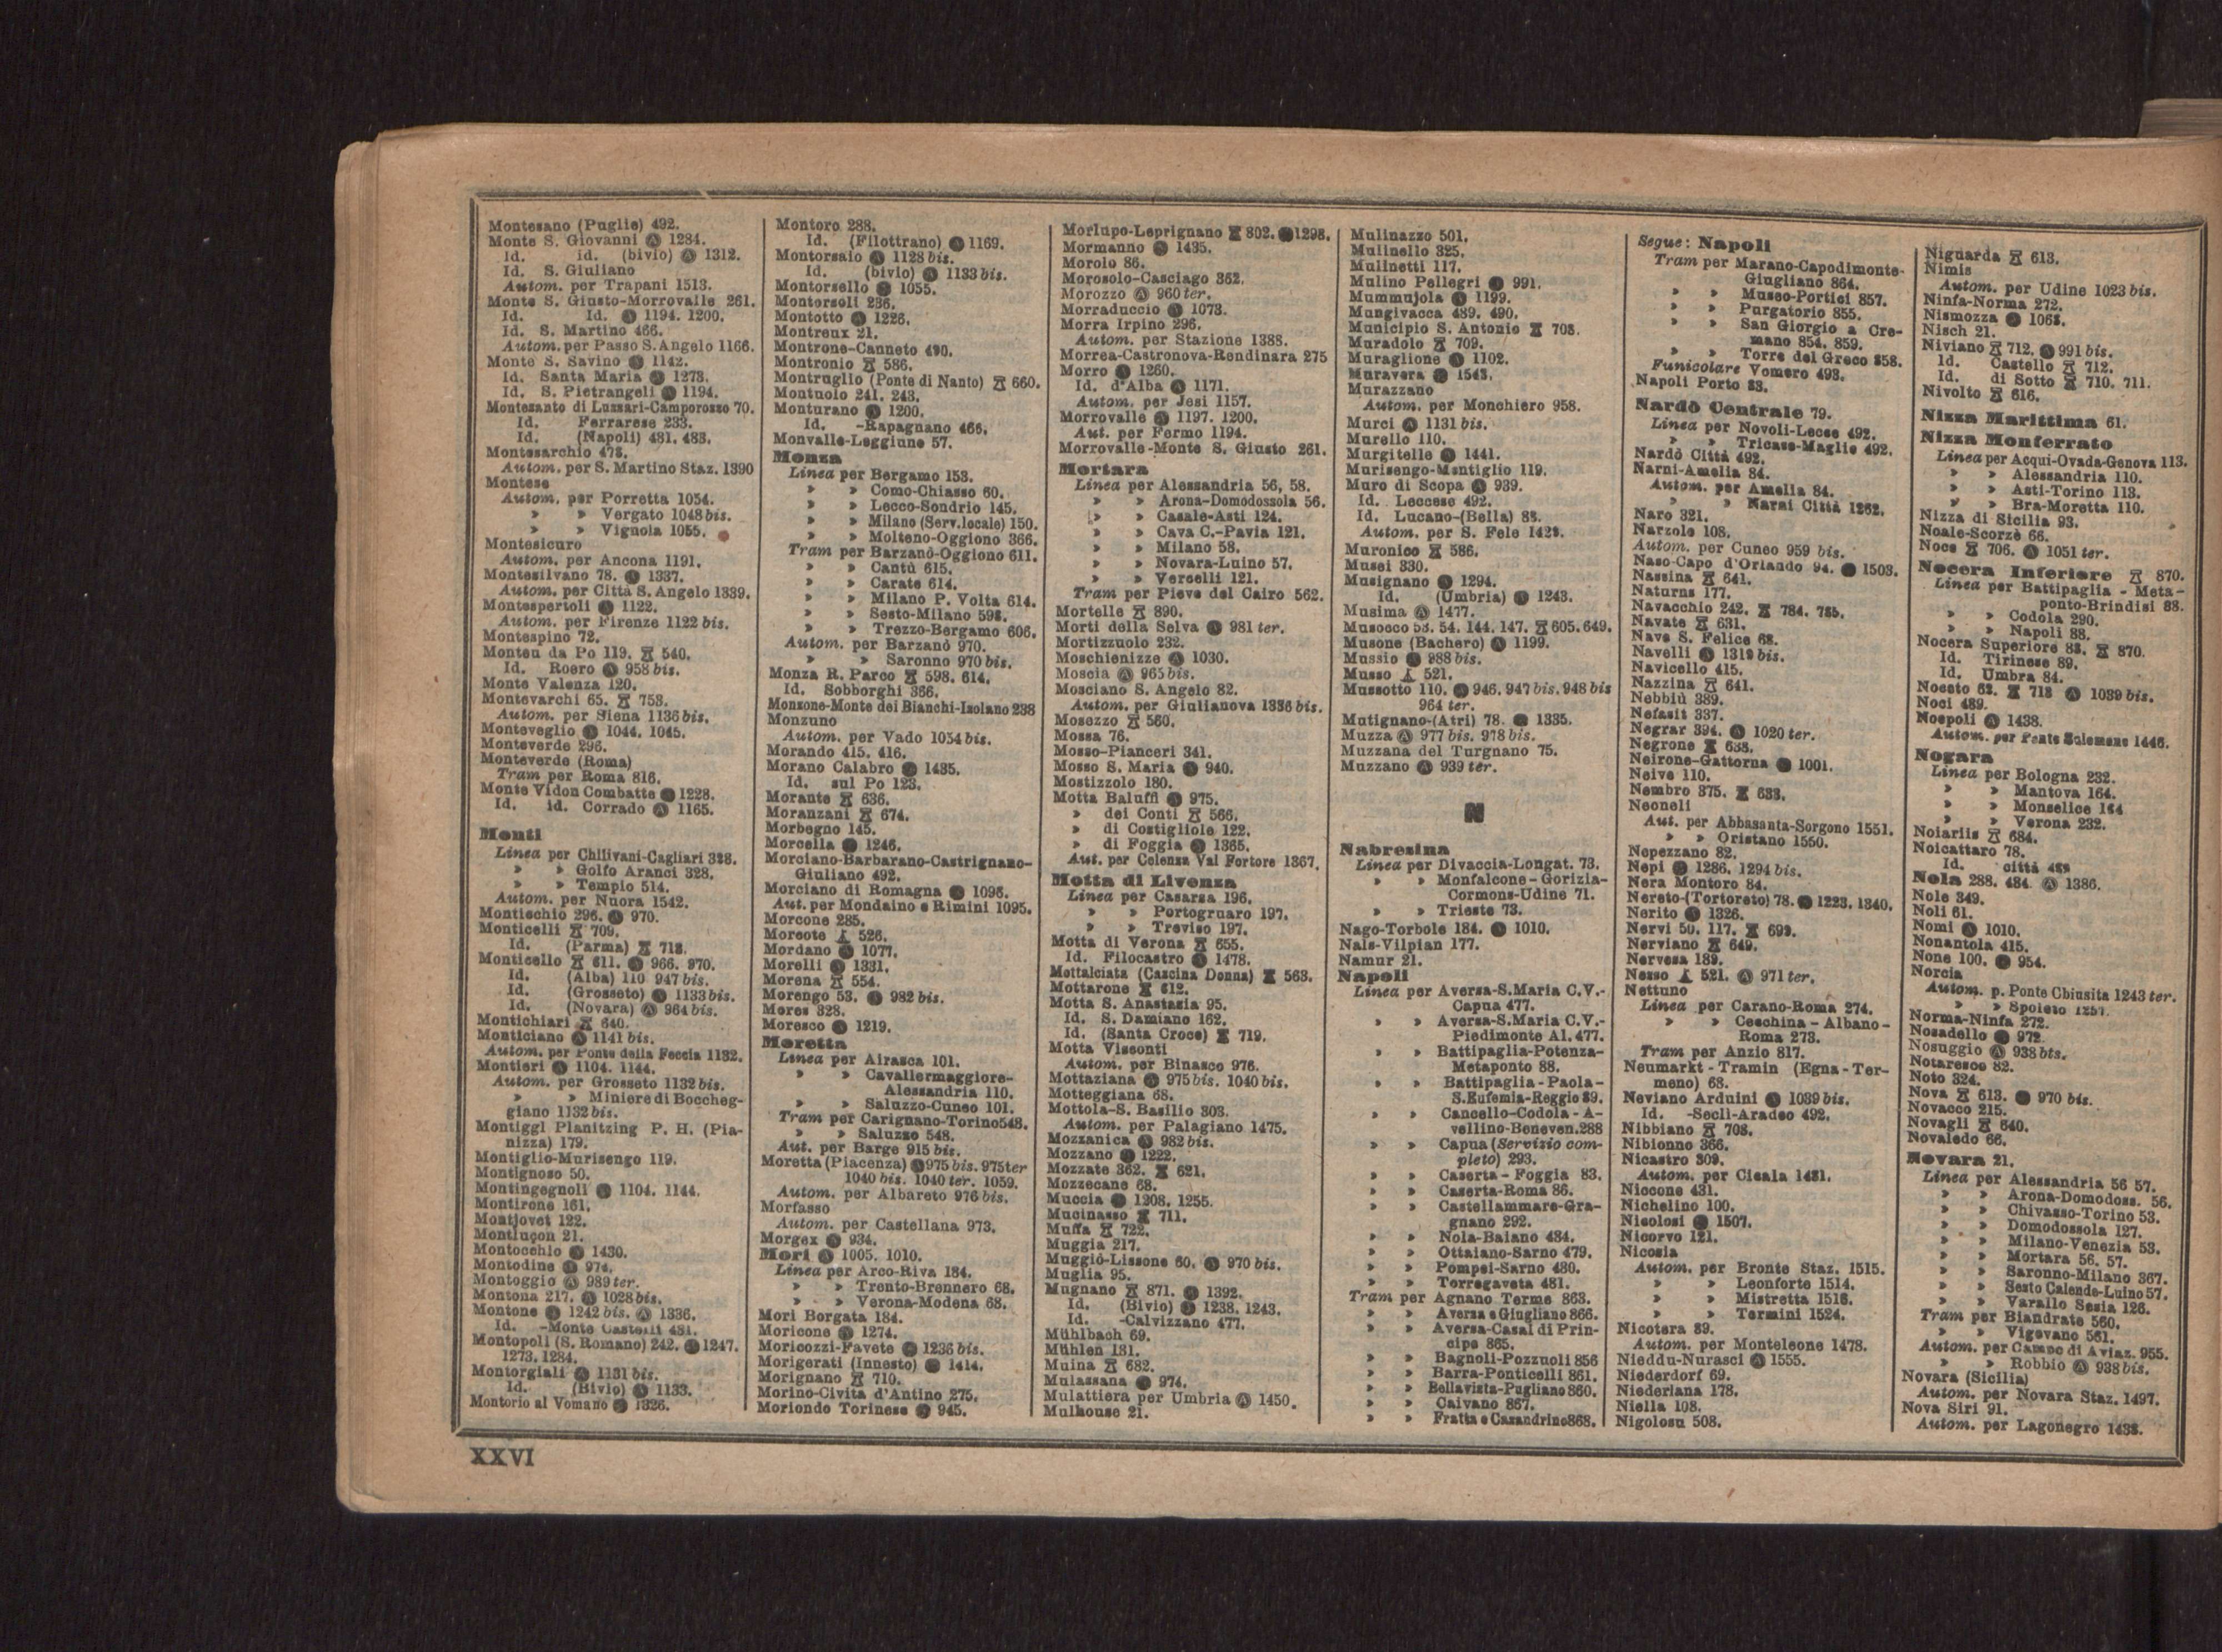 Montesano (Puglie) 492.
Monte S. Giovanni Ⓐ 1284.
Id. id. (bivio) Ⓐ 1312.
Id. S. Giuliano
Autom. per Trapani 1513.
Monte S. Giusto-Morrovalle 261.
Id. Id. Ⓐ 1194. 1200.
Id. S. Martino 466.
Autom. per Passo S. Angelo 1166.
Monte S. Savino Ⓐ 1142.
Id. Santa Maria Ⓐ 1273.
Id. S. Pietrangeli Ⓐ 1194.
Montesanto di Lussari-Camporosso 70.
Id. Ferrarese 233.
Id. (Napoli) 481. 483.
Montesarchio 473.
Autom. per S. Martino Staz. 1390
Montese
Autom. per Porretta 1054.
» » Vergato 1048 bis.
» » Vignola 1055.
Montesicuro
Autom. per Ancona 1191.
Montesilvano 78. Ⓐ 1337.
Autom. per Città S. Angelo 1339.
Montespertoli Ⓐ 1122.
Autom. per Firenze 1122 bis.
Montespino 72.
Monteu da Po 119. 540.
Id. Roero Ⓐ 958 bis.
Monte Valenza 120.
Montevarchi 65. 753.
Autom. per Siena 1136 bis.
Monteveglio Ⓐ 1044. 1045.
Monteverde 296.
Monteverde (Roma)
Tram per Roma 816.
Monte Vidon Combatte Ⓐ 1228.
Id. id. Corrado Ⓐ 1165.
Monti
Linea per Chilivani-Cagliari 328.
» » Golfo Aranci 328.
» » Tempio 514.
Autom. per Nuora 1542.
Montischio 296. Ⓐ 970.
Monticelli 709.
Id. (Parma) 718.
Monticello 611. Ⓐ 966. 970.
Id. (Alba) 110 947 bis.
Id. (Grosseto) Ⓐ 1133 bis.
Id. (Novara) Ⓐ 964 bis.
Montichiari 640.
Monticiano Ⓐ 1141 bis.
Autom. per Ponte della Feccia 1132.
Montieri Ⓐ 1104. 1144.
Autom. per Grosseto 1132 bis.
» » Miniere di Boccheg-
giano 1132 bis.
Montiggl Planitzing P. H. (Pia-
nizza) 179.
Montiglio-Murisengo 119.
Montignoso 50.
Montingegnoli Ⓐ 1104. 1144.
Montirone 161.
Montjovet 122.
Montluçon 21.
Montocchio Ⓐ 1430.
Montodine Ⓐ 974.
Montoggio Ⓐ 989 ter.
Montona 217. Ⓐ 1028 bis.
Montone Ⓐ 1242 bis. Ⓐ 1336.
Id. -Monte Castelli 431.
Montopoli (S. Romano) 242. Ⓐ 1247.
1273. 1284.
Montorgiali Ⓐ 1131 bis.
Id. (Bivio) Ⓐ 1133.
Montorio al Vomano Ⓐ 1326.
Montoro 288.
Id. (Filottrano) Ⓐ 1169.
Montorsaio Ⓐ 1128 bis.
Id. (bivio) Ⓐ 1133 bis.
Montorsello Ⓐ 1055.
Montorsoli 236.
Montotto Ⓐ 1226.
Montreux 21.
Montrone-Canneto 490.
Montronio 586.
Montruglio (Ponte di Nanto) 660.
Montuolo 241. 243.
Monturano Ⓐ 1200.
Id. -Rapagnano 466.
Monvalle-Leggiuno 57.
Monza
Linea per Bergamo 153.
» » Como-Chiasso 60.
» » Lecco-Sondrio 145.
» » Milano (Serv. locale) 150.
» » Molteno-Oggiono 366.
Tram per Barzanò-Oggiono 611.
» » Cantù 615.
» » Carate 614.
» » Milano P. Volta 614.
» » Sesto-Milano 598.
» » Trezzo-Bergamo 606.
Autom. per Barzanò 970.
» » Saronno 970 bis.
Monza R. Parco 598. 614.
Id. Sobborghi 366.
Monzone-Monte dei Bianchi-Isolano 238
Monzuno
Autom. per Vado 1054 bis.
Morando 415. 416.
Morano Calabro Ⓐ 1435.
Id. sul Po 123.
Morante 636.
Moranzani 674.
Morbegno 145.
Morcella Ⓐ 1246.
Morciano-Barbarano-Castrignano-
Giuliano 492.
Morciano di Romagna Ⓐ 1096.
Aut. per Mondaino e Rimini 1095.
Morcone 285.
Morcote 526.
Mordano Ⓐ 1077.
Morelli Ⓐ 1331.
Morena 554.
Morengo 53. Ⓐ 982 bis.
Mores 328.
Moresco Ⓐ 1219.
Moretta
Linea per Airasca 101.
» » Cavallermaggiore-
Alessandria 110.
» » Saluzzo-Cuneo 101.
Tram per Carignano-Torino 548.
» » Saluzzo 548.
Aut. per Barge 915 bis.
Moretta (Piacenza) Ⓐ 975 bis. 975 ter
1040 bis. 1040 ter. 1059.
Autom. per Albareto 976 bis.
Morfasso
Autom. per Castellana 973.
Morgex Ⓐ 934.
Mori Ⓐ 1005. 1010.
Linea per Arco-Riva 184.
» » Trento-Brennero 68.
» » Verona-Modena 68.
Mori Borgata 184.
Moricone Ⓐ 1274.
Moricozzi-Favete Ⓐ 1236 bis.
Morigerati (Innesto) Ⓐ 1414.
Morignano 710.
Morino-Civita d'Antino 275.
Moriondo Torinese Ⓐ 945.
Morlupo-Leprignano 802. Ⓐ 1298.
Mormanno Ⓐ 1435.
Morolo 86.
Morosolo-Casciago 362.
Morozzo Ⓐ 960 ter.
Morraduccio Ⓐ 1073.
Morra Irpino 296.
Autom. per Stazione 1388.
Morrea-Castronova-Rendinara 275
Morro Ⓐ 1260.
Id. d'Alba Ⓐ 1171.
Autom. per Jesi 1157.
Morrovalle Ⓐ 1197. 1200.
Aut. per Fermo 1194.
Morrovalle-Monte S. Giusto 261.
Mortara
Linea per Alessandria 56, 58.
» » Arona-Domodossola 56.
» » Casale-Asti 124.
» » Cava C.-Pavia 121.
» » Milano 58.
» » Novara-Luino 57.
» » Vercelli 121.
Tram per Pieve del Cairo 562.
Mortelle 890.
Morti della Selva Ⓐ 981 ter.
Mortizzuolo 232.
Moschienizze Ⓐ 1030.
Moscia Ⓐ 965 bis.
Mosciano S. Angelo 82.
Autom. per Giulianova 1336 bis.
Mosezzo 560.
Mossa 76.
Mosso-Pianceri 341.
Mosso S. Maria Ⓐ 940.
Mostizzolo 180.
Motta Baluffi Ⓐ 975.
» dei Conti 566.
» di Costigliole 122.
» di Foggia Ⓐ 1365.
Aut. per Celenza Val Fortore 1367.
Motta di Livenza
Linea per Casarsa 196.
» » Portogruaro 197.
» » Treviso 197.
Motta di Verona 655.
Id. Filocastro Ⓐ 1478.
Mottalciata (Cascina Donna) 563.
Mottarone 612.
Motta S. Anastasia 95.
Id. S. Damiano 162.
Id. (Santa Croce) 719.
Motta Visconti
Autom. per Binasco 976.
Mottaziana Ⓐ 975 bis. 1040 bis.
Motteggiana 68.
Mottola-S. Basilio 303.
Autom. per Palagiano 1475.
Mozzanica Ⓐ 982 bis.
Mozzano Ⓐ 1222.
Mozzate 362. 621.
Mozzecane 68.
Muccia Ⓐ 1208. 1255.
Mucinasso 711.
Muffa 722.
Muggia 217.
Muggiò-Lissone 60. Ⓐ 970 bis.
Muglia 95.
Mugnano 871. Ⓐ 1392.
Id. (Bivio) Ⓐ 1238. 1243.
Id. -Calvizzano 477.
Mühlbach 69.
Mühlen 181.
Muina 682.
Mulassana Ⓐ 974.
Mulattiera per Umbria Ⓐ 1450.
Mulhouse 21.
Mulinazzo 501.
Mulinello 325.
Mulinetti 117.
Mulino Pellegri Ⓐ 991.
Mummujola Ⓐ 1199.
Mungivacca 489. 490.
Municipio S. Antonio 708.
Muradolo 709.
Muraglione Ⓐ 1102.
Muravera Ⓐ 1543.
Murazzano
Autom. per Monchiero 958.
Murci Ⓐ 1131 bis.
Murello 110.
Murgitelle Ⓐ 1441.
Murisengo-Montiglio 119.
Muro di Scopa Ⓐ 939.
Id. Leccese 492.
Id. Lucano-(Bella) 88.
Autom. per S. Fele 1423.
Muronico 586.
Musei 330.
Musignano Ⓐ 1294.
Id. (Umbria) Ⓐ 1243.
Musima Ⓐ 1477.
Musocco 53. 54. 144. 147. 605. 649.
Musone (Bachero) Ⓐ 1199.
Mussio Ⓐ 988 bis.
Musso 521.
Mussotto 110. Ⓐ 946. 947 bis. 948 bis
964 ter.
Mutignano-(Atri) 78. Ⓐ 1335.
Muzza Ⓐ 977 bis. 978 bis.
Muzzana del Turgnano 75.
Muzzano Ⓐ 939 ter.
N
Nabresina
Linea per Divaccia-Longat. 73.
» » Monfalcone-Gorizia-
Cormons-Udine 71.
» » Trieste 73.
Nago-Torbole 184. Ⓐ 1010.
Nals-Vilpian 177.
Namur 21.
Napoli
Linea per Aversa-S. Maria C. V.-
Capua 477.
» » Aversa-S. Maria C. V.-
Piedimonte Al. 477.
» » Battipaglia-Potenza-
Metaponto 88.
» » Battipaglia-Paola-
S. Eufemia-Reggio 89.
» » Cancello-Codola-A-
vellino-Beneven. 288
» » Capua (Servizio com-
pleto) 293.
» » Caserta-Foggia 83.
» » Caserta-Roma 86.
» » Castellammare-Gra-
gnano 292.
» » Nola-Baiano 484.
» » Ottaiano-Sarno 479.
» » Pompei-Sarno 480.
» » Torregaveta 481.
Tram per Agnano Terme 863.
» » Aversa e Giugliano 866.
» » Aversa-Casal di Prin-
cipe 865.
» » Bagnoli-Pozzuoli 856
» » Barra-Ponticelli 861.
» » Bellavista-Pugliano 860.
» » Caivano 867.
» » Fratta e Casandrino 868.
Segue: Napoli
Tram per Marano-Capodimonte-
Giugliano 864.
» » Museo-Portici 857.
» » Purgatorio 855.
» » San Giorgio a Cre-
mano 854. 859.
» » Torre del Greco 858.
Funicolare Vomero 493.
Napoli Porto 83.
Nardò Centrale 79.
Linea per Novoli-Lecce 492.
» » Tricase-Maglie 492.
Nardò Città 492.
Narni-Amelia 84.
Autom. per Amelia 84.
» » Narni Città 1262.
Naro 321.
Narzole 108.
Autom. per Cuneo 959 bis.
Naso-Capo d'Orlando 94. Ⓐ 1503.
Nassina 641.
Naturns 177.
Navacchio 242. 784. 785.
Navate 631.
Nave S. Felice 68.
Navelli Ⓐ 1319 bis.
Navicello 415.
Nazzina 641.
Nebbiù 389.
Nefasit 337.
Negrar 394. Ⓐ 1020 ter.
Negrone 638.
Neirone-Gattorna Ⓐ 1001.
Neive 110.
Nembro 375. 633.
Neoneli
Aut. per Abbasanta-Sorgono 1551.
» » Oristano 1550.
Nepezzano 82.
Nepi Ⓐ 1286. 1294 bis.
Nera Montoro 84.
Nereto-(Tortoreto) 78. Ⓐ 1223. 1340.
Nerito Ⓐ 1326.
Nervi 50. 117. 693.
Nerviano 649.
Nervesa 189.
Nesso 521. Ⓐ 971 ter.
Nettuno
Linea per Carano-Roma 274.
» » Cecchina-Albano-
Roma 273.
Tram per Anzio 817.
Neumarkt-Tramin (Egna-Ter-
meno) 68.
Neviano Arduini Ⓐ 1039 bis.
Id. -Seclì-Aradeo 492.
Nibbiano 708.
Nibionno 366.
Nicastro 309.
Autom. per Cicala 1481.
Niccone 431.
Nichelino 100.
Nicolosi Ⓐ 1507.
Nicorvo 121.
Nicosia
Autom. per Bronte Staz. 1515.
» » Leonforte 1514.
» » Mistretta 1516.
» » Termini 1524.
Nicotera 89.
Autom. per Monteleone 1478.
Nieddu-Nurasci Ⓐ 1555.
Niederdorf 69.
Niederlana 178.
Niella 108.
Nigolosu 508.
Niguarda 613.
Nimis
Autom. per Udine 1023 bis.
Ninfa-Norma 272.
Nismozza Ⓐ 1063.
Nisch 21.
Niviano 712. Ⓐ 991 bis.
Id. Castello 712.
Id. di Sotto 710. 711.
Nivolto 616.
Nizza Marittima 61.
Nizza Monferrato
Linea per Acqui-Ovada-Genova 113.
» » Alessandria 110.
» » Asti-Torino 113.
» » Bra-Moretta 110.
Nizza di Sicilia 93.
Noale-Scorzè 66.
Noce 706. Ⓐ 1051 ter.
Nocera Inferiore 870.
Linea per Battipaglia-Meta-
ponto-Brindisi 88.
» » Codola 290.
» » Napoli 88.
Nocera Superiore 88. 870.
Id. Tirinese 89.
Id. Umbra 84.
Noceto 63. 718 Ⓐ 1039 bis.
Noci 489.
Noepoli Ⓐ 1438.
Autom. per Ponte Salemone 1446.
Nogara
Linea per Bologna 232.
» » Mantova 164.
» » Monselice 164
» » Verona 232.
Noiariis 684.
Noicattaro 78.
Id. città 489
Nola 288. 484. Ⓐ 1386.
Nole 349.
Noli 61.
Nomi Ⓐ 1010.
Nonantola 415.
None 100. Ⓐ 954.
Norcia
Autom. p. Ponte Chiusita 1243 ter.
» » Spoleto 1257.
Norma-Ninfa 272.
Nosadello Ⓐ 972.
Nosuggio Ⓐ 938 bis.
Notaresco 82.
Noto 324.
Nova 613. Ⓐ 970 bis.
Novacco 215.
Novagli 640.
Novaledo 66.
Novara 21.
Linea per Alessandria 56 57.
» » Arona-Domodoss. 56.
» » Chivasso-Torino 53.
» » Domodossola 127.
» » Milano-Venezia 53.
» » Mortara 56. 57.
» » Saronno-Milano 367.
» » Sesto Calende-Luino 57.
» » Varallo Sesia 126.
Tram per Biandrate 560.
» » Vigevano 561.
Autom. per Campo di Aviaz. 955.
» » Robbio Ⓐ 938 bis.
Novara (Sicilia)
Autom. per Novara Staz. 1497.
Nova Siri 91.
Autom. per Lagonegro 1438.
XXVI